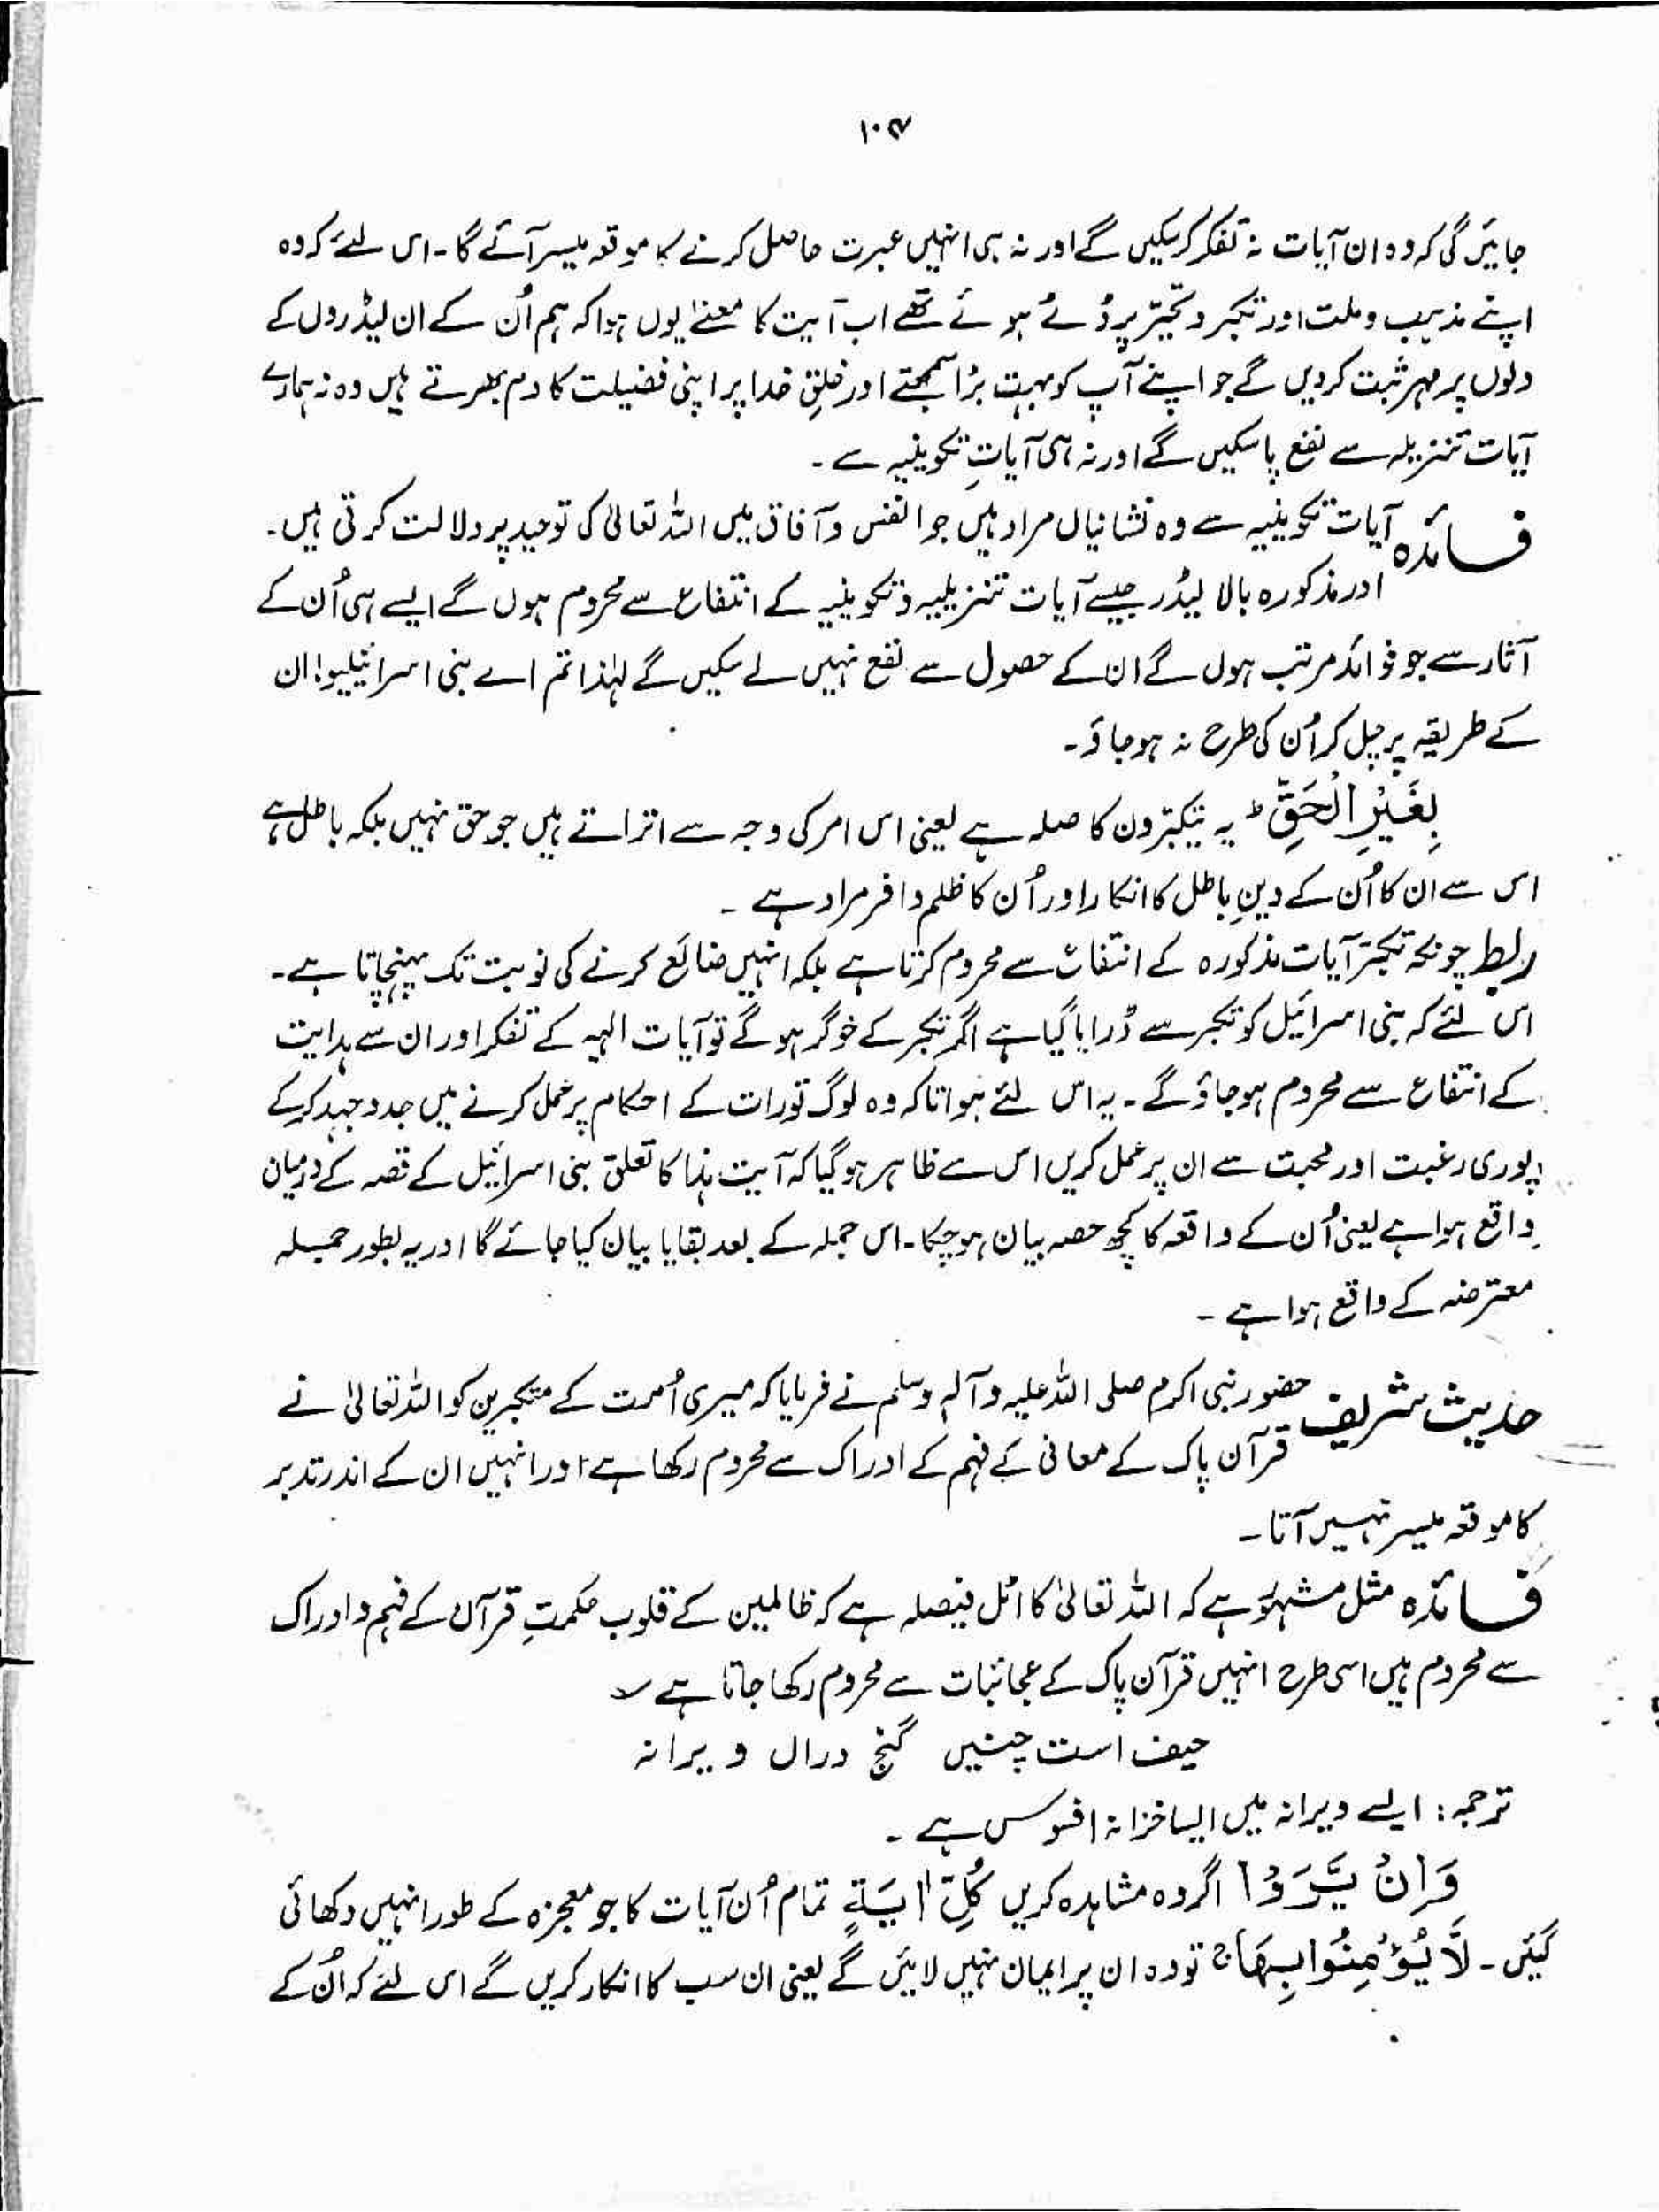 ۱۰۴
جائیں گی کہ وہ ان آیات نہ تفکر کر سکیں گے اور نہ ہی انہیں عبرت حاصل کرنے کا موقعہ میسر آئے گا۔ اس لئے کہ وہ
اپنے مذہب و ملت اور تکبر و تجبّر پر ڈٹے ہوئے تھے اب آیت کا معنےٰ یوں ہوا کہ ہم اُن کے ان لیڈروں کے
دلوں پر مہر ثبت کردیں گے جو اپنے آپ کو بہت بڑا سمجھتے اور خلقِ خدا پر اپنی فضیلت کا دم بھرتے ہیں وہ نہ ہمارے
آیات تنزیلہ سے نفع پا سکیں گے اور نہ ہی آیاتِ تکوینیہ سے۔
فائدہ آیات تکوینیہ سے وہ نشانیاں مراد ہیں جو انفس و آفاق میں اللہ تعالیٰ کی توحید پر دلالت کرتی ہیں۔
اور مذکورہ بالا لیڈر جیسے آیات تنزیلیہ و تکوینیہ کے انتفاع سے محروم ہوں گے ایسے ہی اُن کے
آثار سے جو فوائد مرتب ہوں گے ان کے حصول سے نفع نہیں لے سکیں گے لہٰذا تم اے بنی اسرائیلیو! ان
کے طریقہ پر چل کر اُن کی طرح نہ ہو جاؤ۔
بِغَیْرِ الْحَقِّ ؕ یہ یتکبّرون کا صلہ ہے یعنی اس امر کی وجہ سے اتراتے ہیں جو حق نہیں بلکہ باطل ہے
اس سے ان کا اُن کے دینِ باطل کا انکار اور اُن کا ظلم وافر مراد ہے ۔
ربط چونکہ تکبر آیات مذکورہ کے انتفاع سے محروم کرتا ہے بلکہ انہیں ضائع کرنے کی نوبت تک پہنچاتا ہے۔
اس لئے کہ بنی اسرائیل کو تکبر سے ڈرایا گیا ہے اگر تکبر کے خوگر ہو گے تو آیات الہیہ کے تفکر اور ان سے ہدایت
کے انتفاع سے محروم ہو جاؤ گے ۔ یہ اس لئے ہوا تاکہ وہ لوگ تورات کے احکام پر عمل کرنے میں جدوجہد کرکے
پوری رغبت اور محبت سے ان پر عمل کریں اس سے ظاہر ہو گیا کہ آیت ہذا کا تعلق بنی اسرائیل کے قصہ کے درمیان
واقع ہوا ہے یعنی اُن کے واقعہ کا کچھ حصہ بیان ہو چکا۔ اس جملہ کے بعد بقایا بیان کیا جائے گا اور یہ بطور جملہ
معترضہ کے واقع ہوا ہے ۔
حدیث شریف حضور نبی اکرم صلی اللہ علیہ وآلہ وسلم نے فرمایا کہ میری اُمت کے متکبرین کو اللہ تعالیٰ نے
قرآن پاک کے معانی کے فہم کے ادراک سے محروم رکھا ہے اور انہیں ان کے اندر تدبر
کا موقعہ میسر نہیں آتا۔
فائدہ مثل مشہور ہے کہ اللہ تعالیٰ کا اٹل فیصلہ ہے کہ ظالمین کے قلوب حکمتِ قرآن کے فہم و ادراک
سے محروم ہیں اسی طرح انہیں قرآن پاک کے عجائبات سے محروم رکھا جاتا ہے ؎
حیف است چنیں گنج دراں ویرانہ
ترجمہ : ایسے ویرانہ میں ایسا خزانہ افسوس ہے ۔
وَاِنْ یَّرَوْا اگر وہ مشاہدہ کریں کُلَّ اٰیَۃٍ تمام اُن آیات کا جو معجزہ کے طور انہیں دکھائی
گئیں۔ لَّا یُؤْمِنُوْا بِھَا ۚ تو وہ ان پر ایمان نہیں لائیں گے یعنی ان سب کا انکار کریں گے اس لئے کہ اُن کے